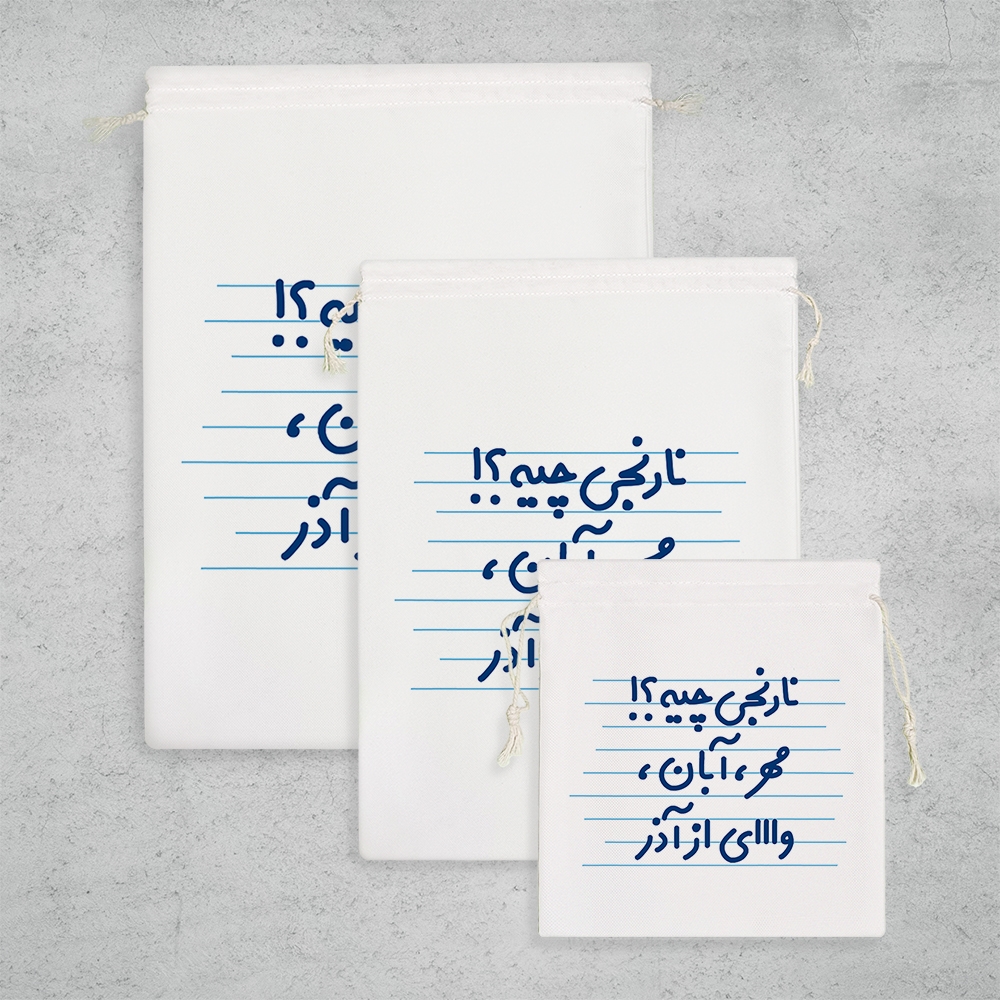 یه؟!
ن،
آذر
نارنجی چیه؟!
مهر، آبان،
آذر
نارنجی چیه؟!
مهر، آبان،
واااای از آذر